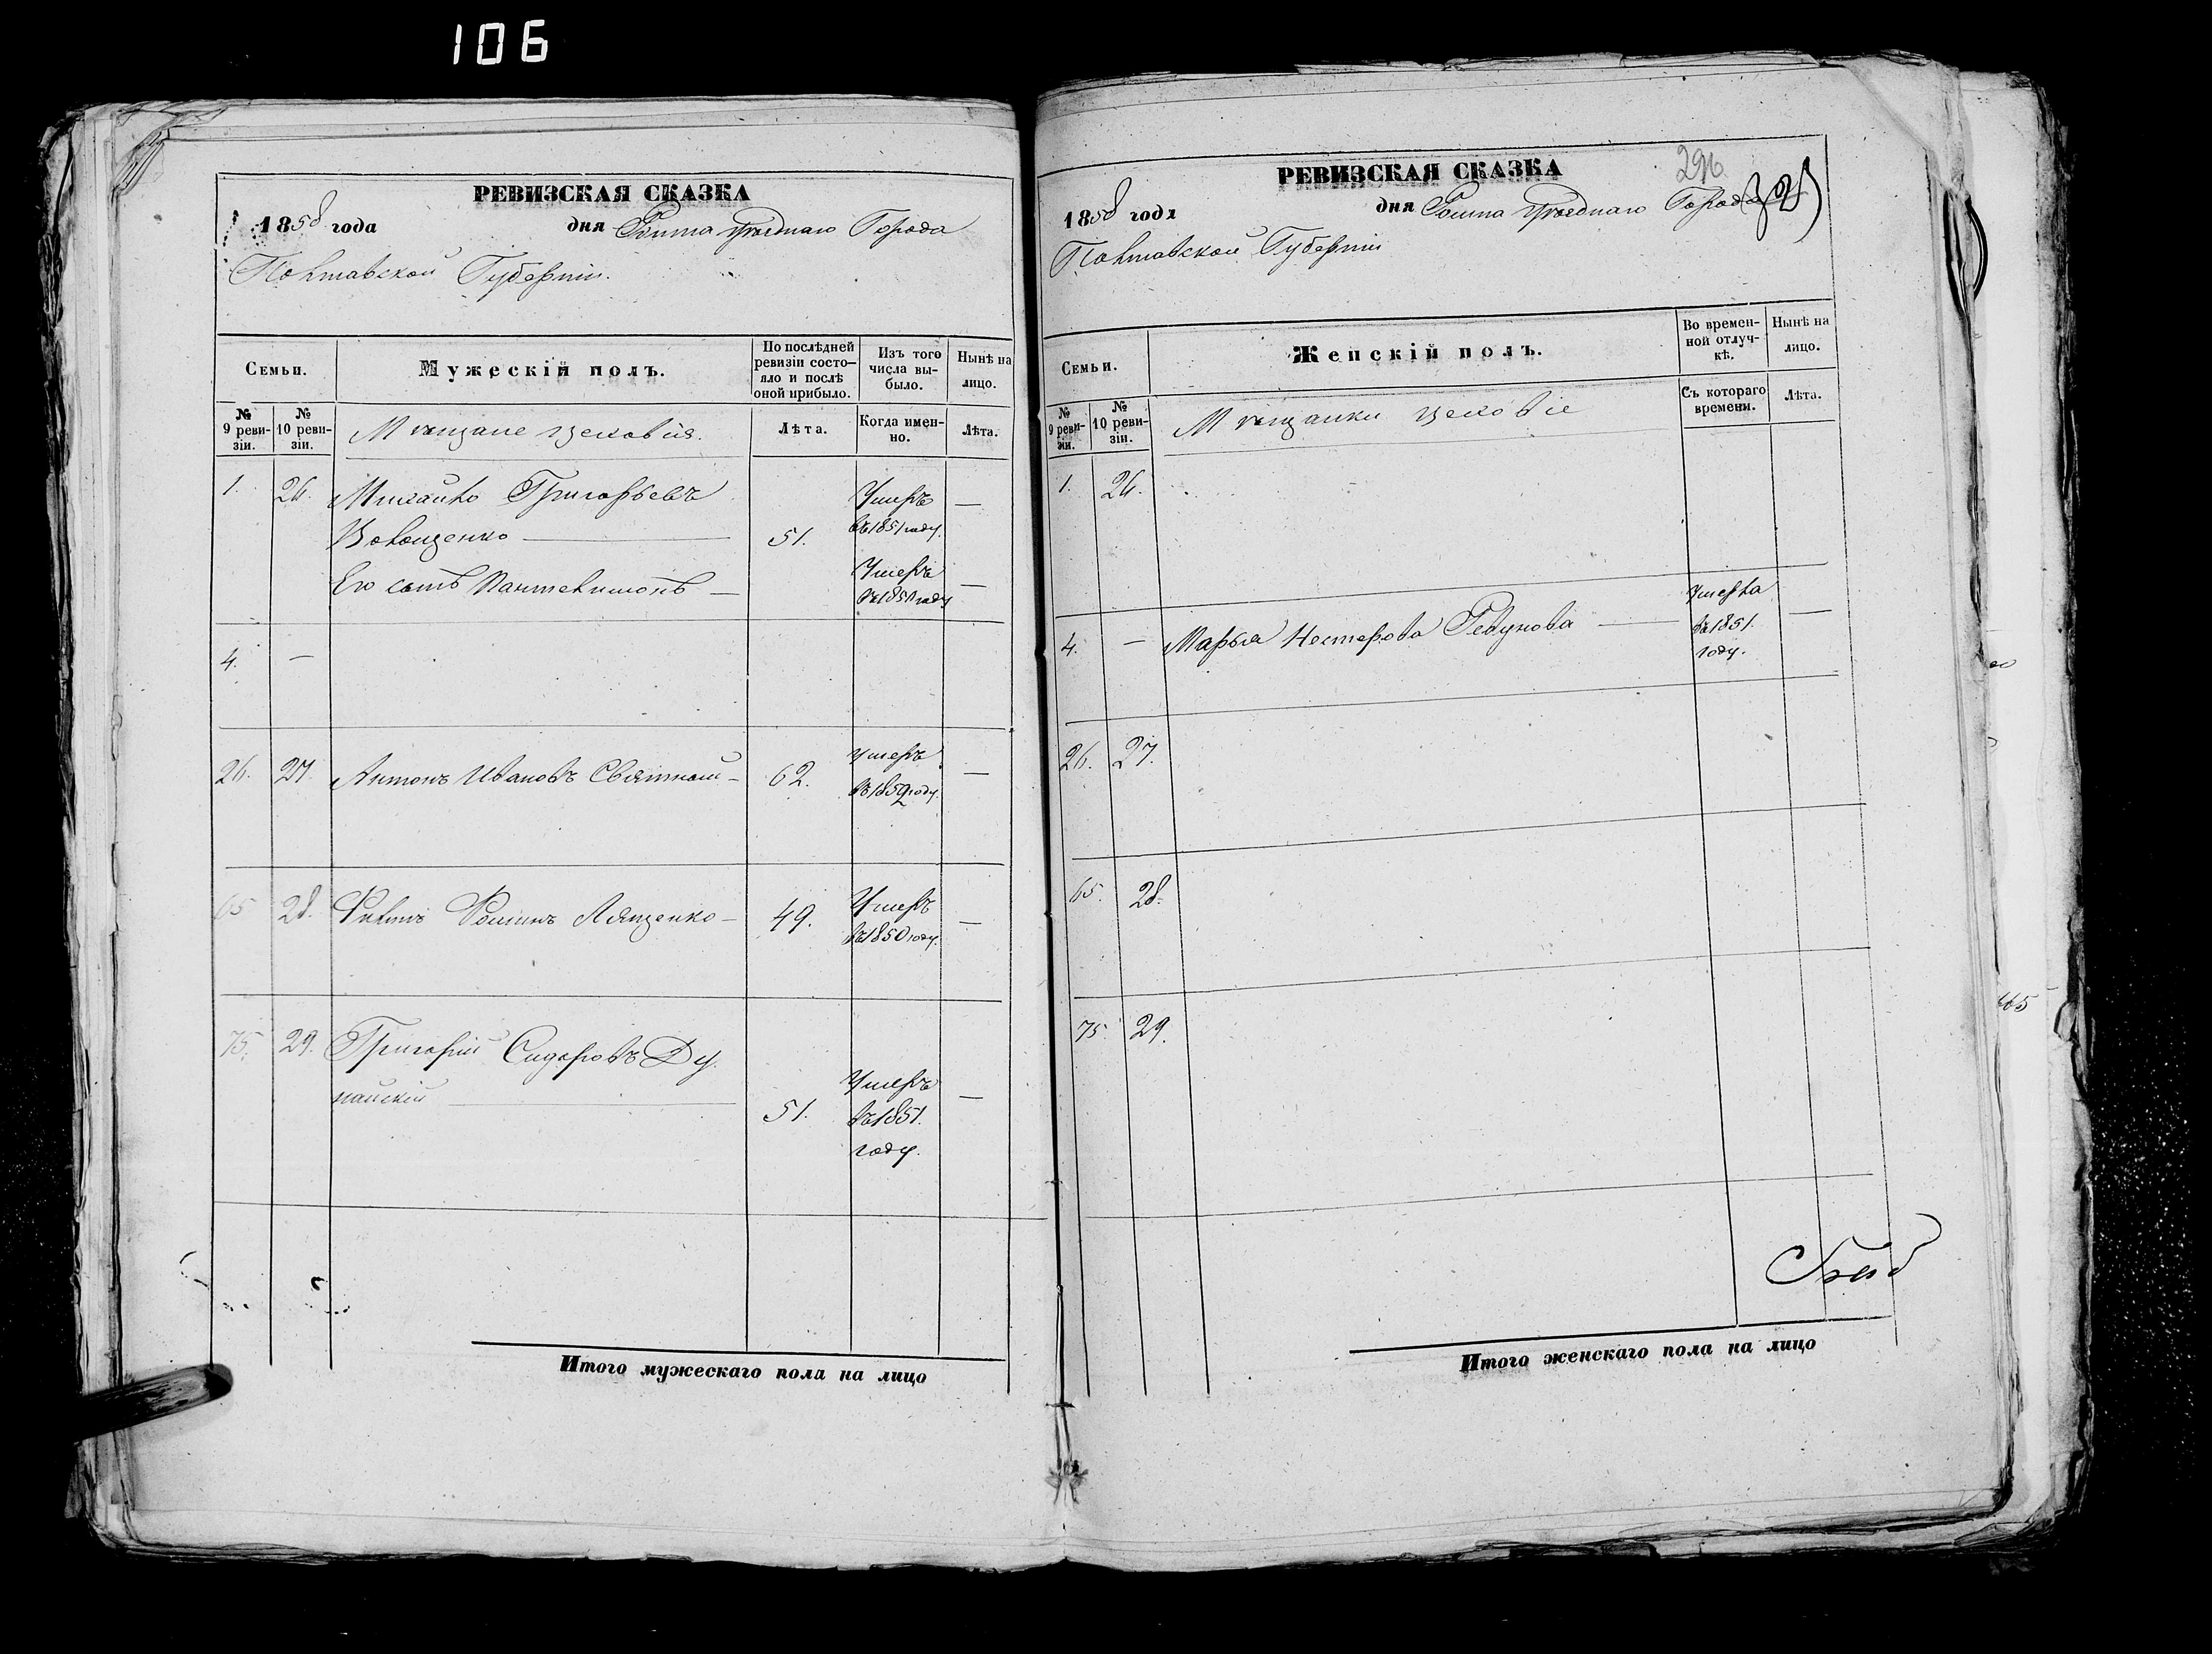 106
РЕВИЗСКАЯ СКАЗКА
1858 года дня Ромна уѣзднаго Города
Полтавской Губерніи.
Семьи.
Мужескій полъ.
По послѣдней ревизіи состо-
яло и послѣ
оной прибыло.
Изъ того
числа вы-
было.
Нынѣ на
лицо.
№
9 реви-
зіи.
№
10 реви-
зіи.
Мѣщане цеховія.
Лѣта.
Когда имен-
но.
Лѣта.
1. 26. Михайло Григорьевъ Умеръ —
51. въ 1851 году.
Его сынъ Пантелимонъ — Умеръ —
4. —
26. 27. Антонъ Ивановъ 62. Умеръ —
въ 1852 году.
65 28. Ляященко — 49. Умеръ —
въ 1850 году.
75. 29. Григорій Сидоровъ Ду
найскій 51. Умеръ —
въ 1851.
году.
Итого мужескаго пола на лицо
РЕВИЗСКАЯ СКАЗКА
296
1858 года дня Ромна уѣзднаго Города
Полтавской Губерніи
Семьи.
Женскій полъ.
Во времен-
ной отлуч-
кѣ.
Нынѣ на
лицо.
№
9 реви-
зіи.
№
10 реви-
зіи.
Мѣщанки цеховіе
Съ котораго
времени.
Лѣта.
1. 26.
4. — Марья Нестерова Редунова Умерла —
въ 1851.
году.
26. 27.
65. 28.
75 29.
Итого женскаго пола на лицо
465